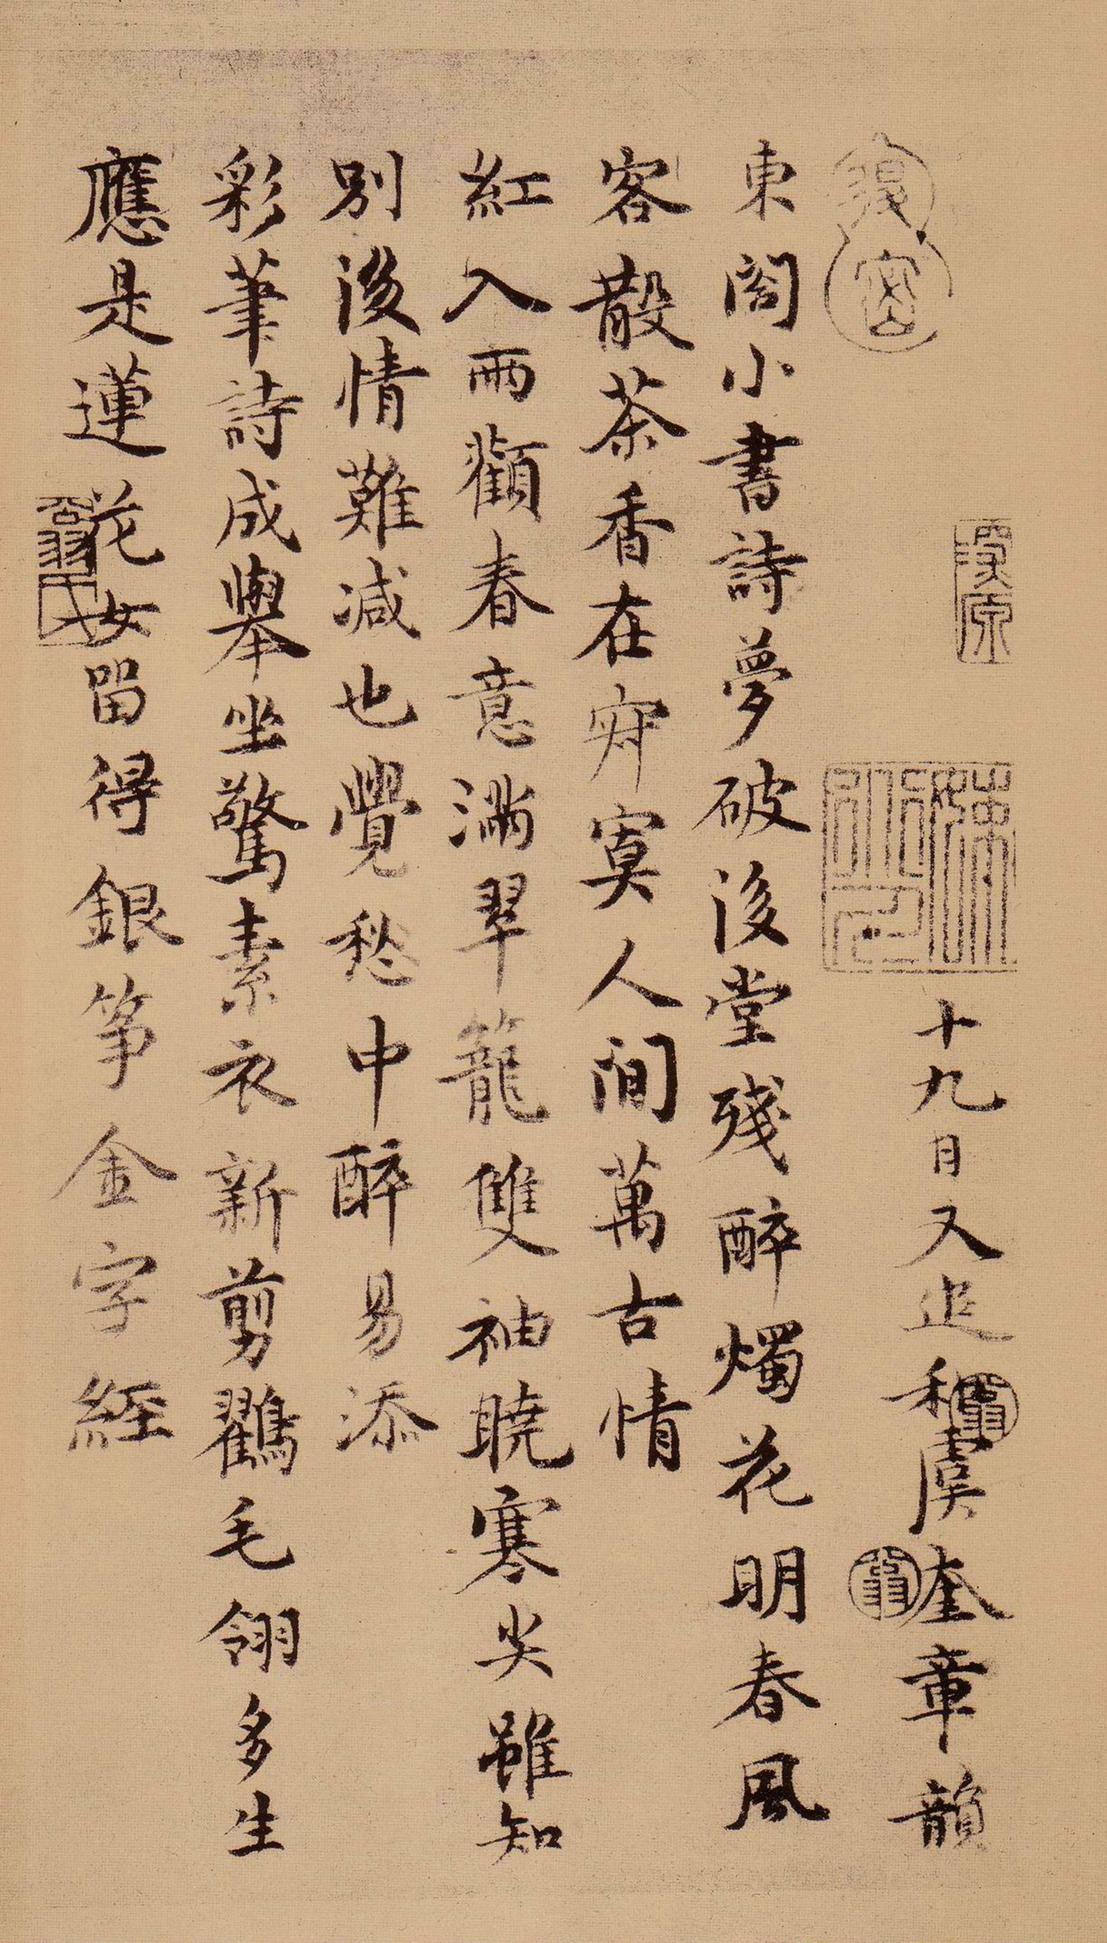 十九日又追和虞奎章韻
東閣小書詩夢破後堂殘醉燭花明春風
客散茶香在寂寞人間萬古情
紅入兩顴春意滿翠籠雙袖曉寒尖雖知
別後情難減也覺愁中醉易添
彩筆詩成舉坐驚素衣新剪鸛毛翎多生
應是蓮花女留得銀箏金字經